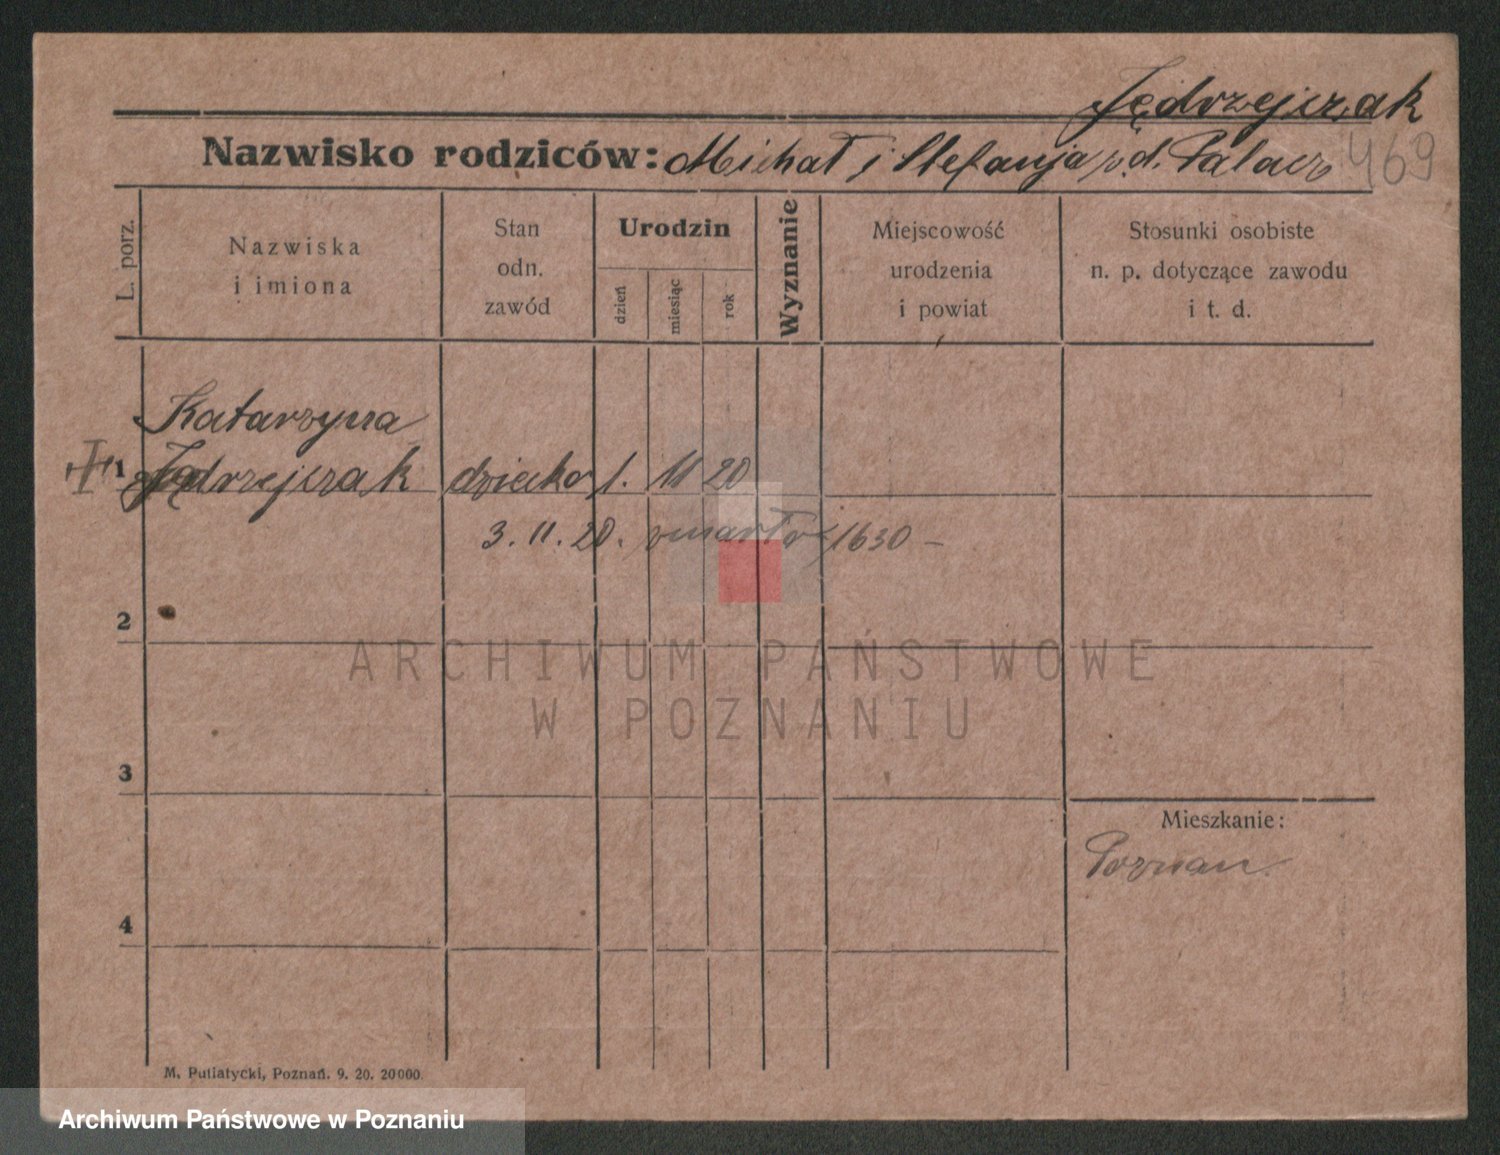 Jędrzejczak
Nazwisko rodziców: Michał i Stefanja z d. Palacz 469
L. porz.
Nazwiska
i imiona
Stan
odn.
zawód
Urodzin
dzień
miesiąc
rok
Wyznanie
Miejscowość
urodzenia
i powiat
Stosunki osobiste
n. p. dotyczące zawodu
i t. d.
Katarzyna
1 Jędrzejczak dziecko 1. 11 20
3. 11. 20. zmarło 1630 -
2
3
4
Mieszkanie:
Poznan
M. Putiatycki, Poznań. 9. 20. 20000.
ARCHIWUM PAŃSTWOWE
W POZNANIU
Archiwum Państwowe w Poznaniu